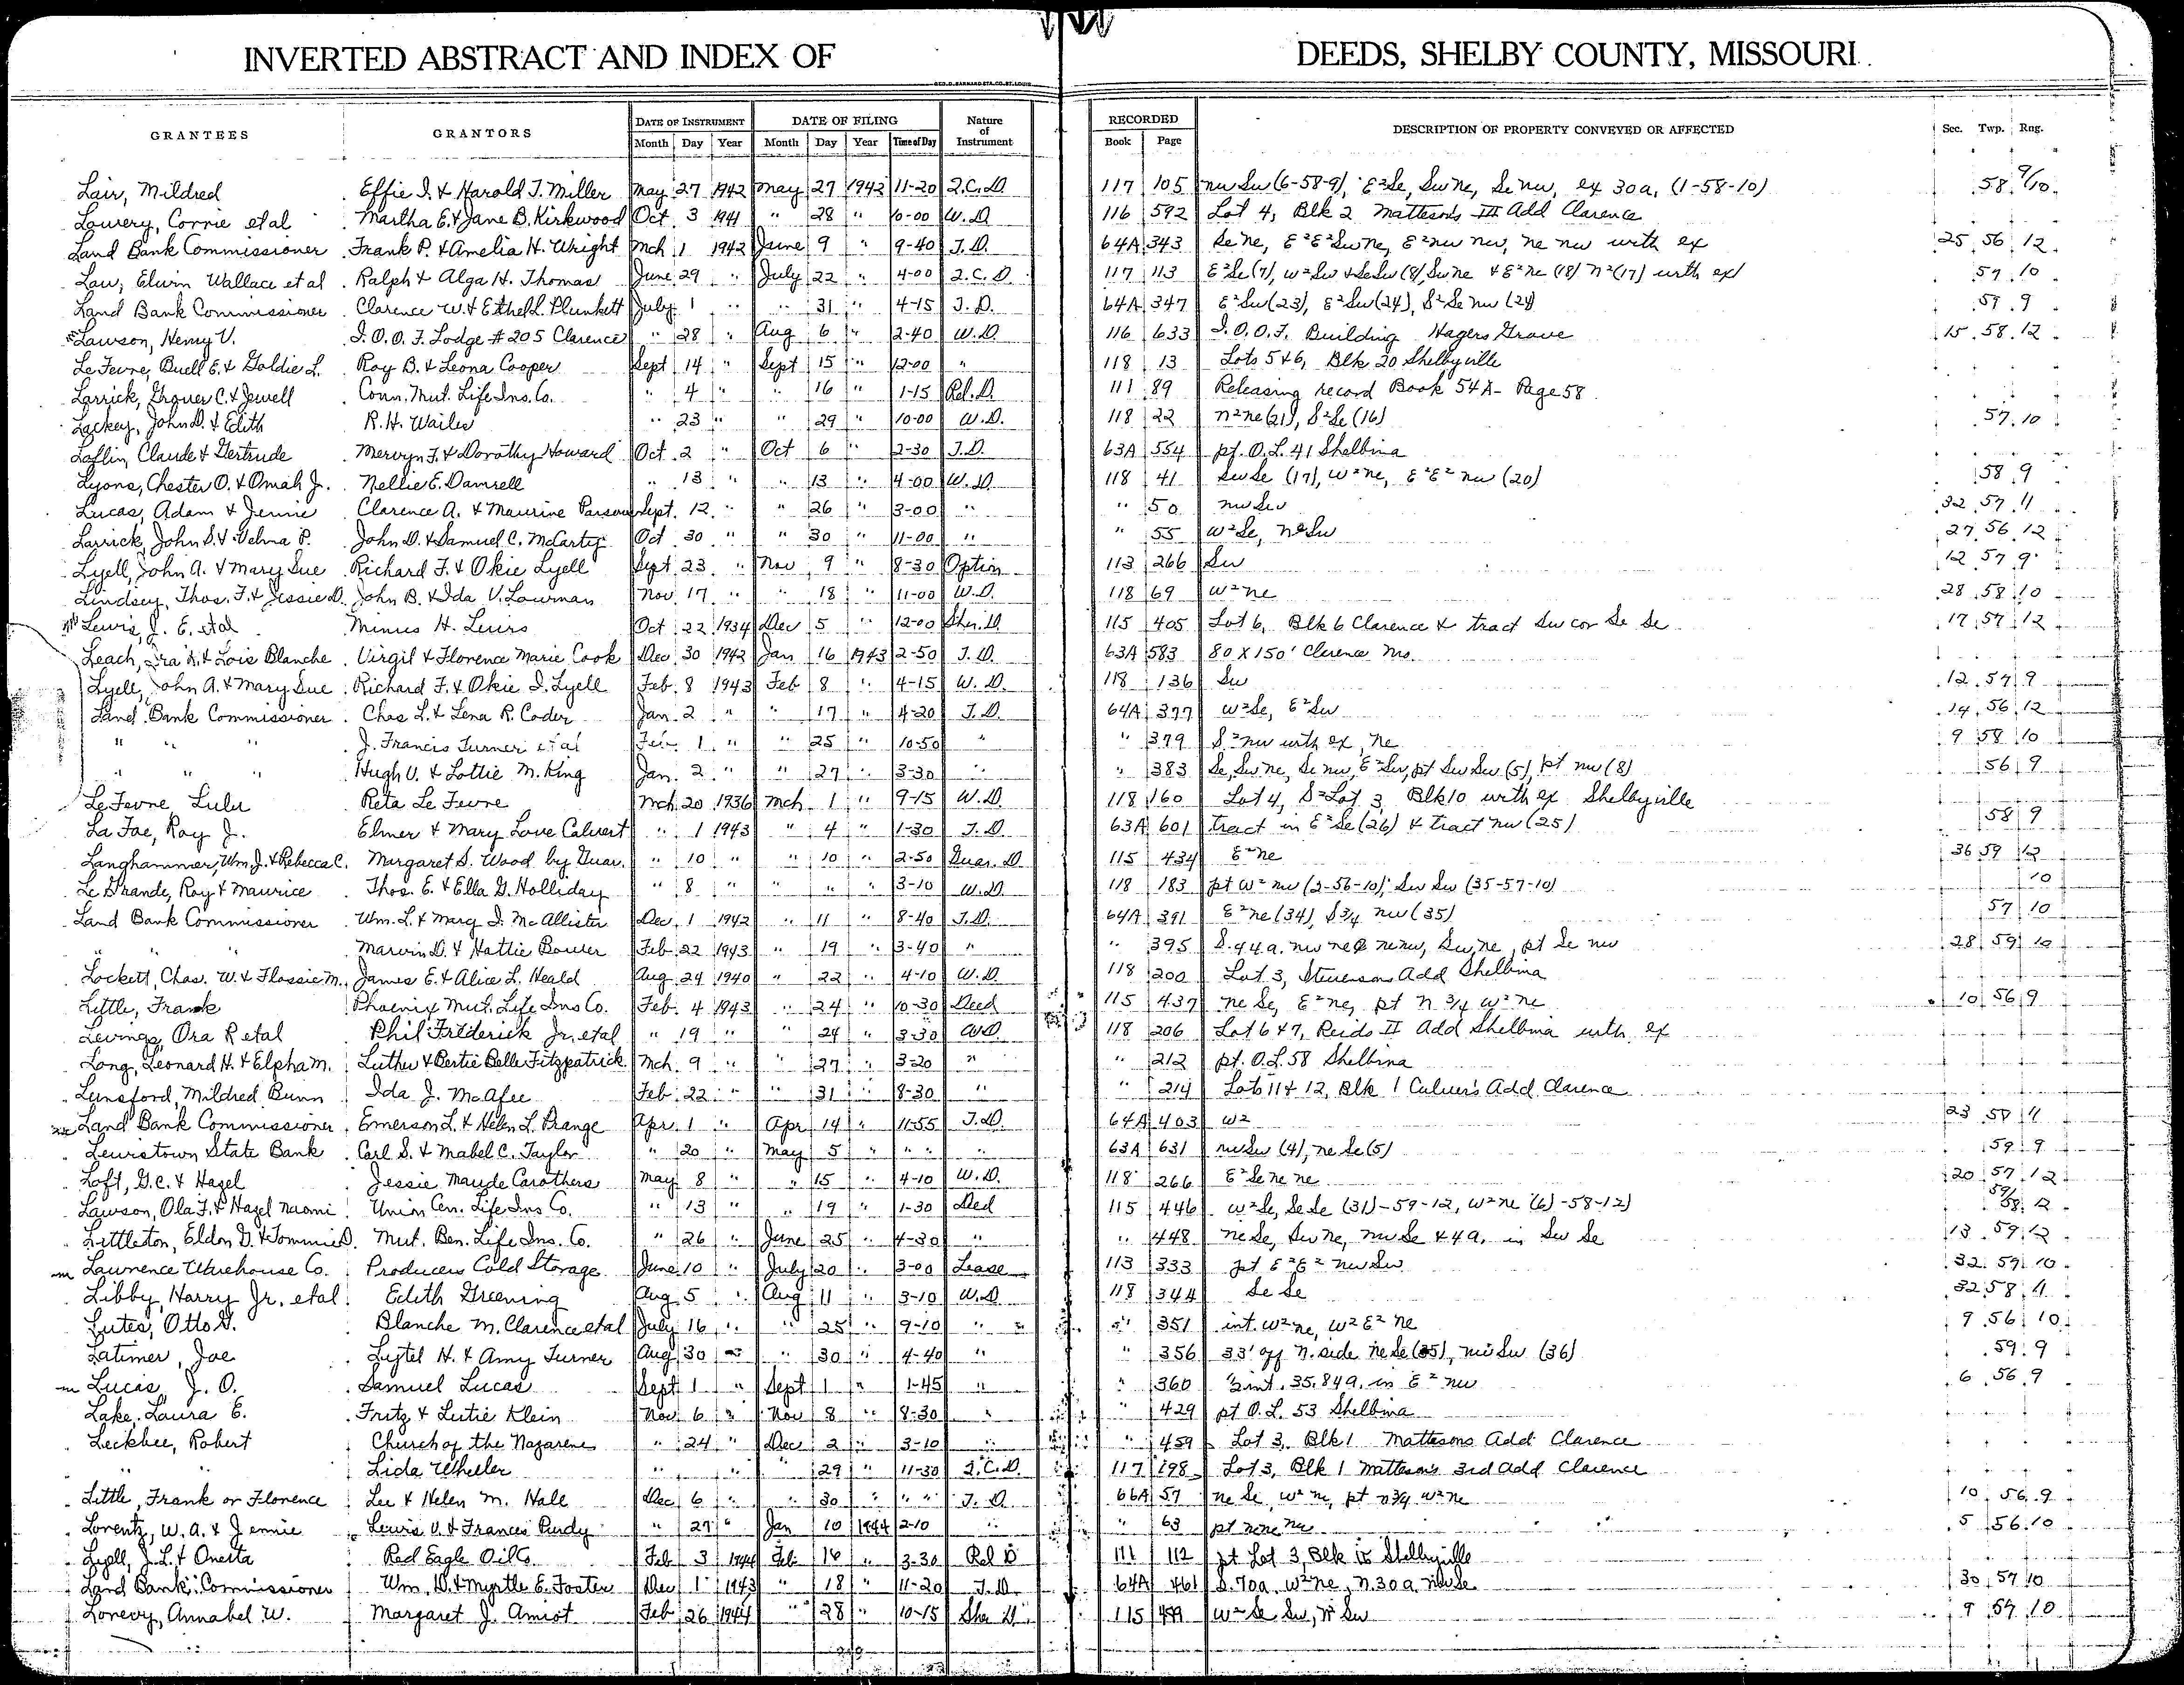 INVERTED ABSTRACT AND INDEX OF DEEDS, SHELBY COUNTY, MISSOURI
GEO. D. BARNARD STA. CO. ST. LOUIS
GRANTEES GRANTORS DATE OF INSTRUMENT DATE OF FILING Nature of Instrument RECORDED DESCRIPTION OF PROPERTY CONVEYED OR AFFECTED Sec. Twp. Rng.
Month Day Year Month Day Year Time of Day Book Page
Lair, Mildred Effie I. & Harold T. Miller May 27 1942 May 27 1942 11-20 Q.C.D. 117 105 nw Sw (6-58-9), E²Se, Sw ne, Se nw, ex 30a, (1-58-10) 58 9/10
Lowery, Corrie etal Martha E. & Jane B. Kirkwood Oct 3 1941 " 28 " 10-00 W.D. 116 592 Lot 4, Blk 2 Mattesons III Add Clarence
Land Bank Commissioner Frank P. & Amelia H. Wright Mch 1 1942 June 9 " 9-40 T.D. 64A 343 Se ne, E²E²Sw ne, E²nw nw, ne nw with ex 25 56 12
Law, Elwin Wallace et al Ralph & Alga H. Thomas June 29 " July 22 " 4-00 Q.C.D. 117 113 E²Se(7), W²Sw & SeSw(8), Sw ne & E²ne (18) n²(17) with ex 57 10
Land Bank Commissioner Clarence W. & Ethel L. Plunkett July 1 " " 31 " 4-15 T.D. 64A 347 E²Sw(23), E²Sw(24), S²Se nw (24) 59 9
Lawson, Henry V. I.O.O.F. Lodge #205 Clarence " 28 " Aug 6 " 2-40 W.D. 116 633 I.O.O.F. Building Hagers Grove 15 58 12
Le Fevre, Buell E. & Goldie L. Roy B. & Leona Cooper Sept 14 " Sept 15 " 12-00 " 118 13 Lots 5 & 6, Blk 20 Shelbyville
Larrick, Grover C. & Jewell Conn. Mut. Life Ins. Co. " 4 " " 16 " 1-15 Rel. D. 111 89 Releasing record Book 54A - Page 58
Lackey, John D. & Edith R.H. Wailes " 23 " " 29 " 10-00 W.D. 118 22 n²ne(21), S²Se(16) 57 10
Laflin, Claude & Gertrude Mervyn F. & Dorothy Howard Oct 2 " Oct 6 " 2-30 T.D. 63A 554 pt. O.L. 41 Shelbina
Lyons, Chester O. & Omah J. Nellie E. Damrell " 13 " " 13 " 4-00 W.D. 118 41 Sw Se (17), W²ne, E²E² nw (20) 58 9
Lucas, Adam & Jennie Clarence A. & Maurine Parsons Sept. 12 " " 26 " 3-00 " " 50 nw Sw 32 57 11
Larrick, John S. & Velma P. John D. & Samuel C. McCarty Oct 30 " " 30 " 11-00 " " 55 W²Se, ne Sw 27 56 12
Lyell, John A. & Mary Sue Richard F. & Okie Lyell Sept 23 " Nov 9 " 8-30 Option 113 266 Sw 12 57 9
Lindsey, Thos. F. & Jessie D. John B. & Ida V. Lowman Nov 17 " " 18 " 11-00 W.D. 118 69 W²ne 28 58 10
Lewis, J. E. etal Minus H. Lewis Oct 22 1934 Dec 5 " 12-00 Sher. D. 115 405 Lot 6, Blk 6 Clarence & tract Sw cor Se Se 17 57 12
Leach, Ira H. & Lois Blanche Virgil & Florence Marie Cook Dec 30 1942 Jan 16 1943 2-50 T.D. 63A 583 80 X 150' Clarence Mo.
Lyell, John A. & Mary Sue Richard F. & Okie I. Lyell Feb 8 1943 Feb 8 " 4-15 W.D. 118 136 Sw 12 57 9
Land Bank Commissioner Chas L. & Lena R. Coder Jan 2 " " 17 " 4-20 T.D. 64A 377 W²Se, E²Sw 14 56 12
" " " J. Francis Turner etal Feb 1 " " 25 10-50 " " 379 S²nw with ex, ne 9 58 10
" " " Hugh V. & Lottie M. King Jan. 2 " " 27 " 3-30 " " 383 Se, Sw ne, Se nw, E²Sw, pt Sw Sw (5), pt nw (8) 56 9
Le Fevre, Lulu Reta Le Fevre Mch 20 1936 Mch 1 " 9-15 W.D. 118 160 Lot 4, S²Lot 3 Blk 10 with ex Shelbyville
La Foe, Roy J. Elmer & Mary Love Calvert " 1 1943 " 4 " 1-30 T.D. 63A 601 tract in E²Se (26) & tract nw (25) 58 9
Langhammer, Wm. J. & Rebecca C. Margaret S. Wood by Guar. " 10 " " 10 " 2-50 Guar. D. 115 434 E²ne 36 59 12
Le Grande, Roy & Maurice Thos. E. & Ella G. Holliday " 8 " " " 3-10 W.D. 118 183 pt W²nw (2-56-10), Sw Sw (35-57-10) 10
Land Bank Commissioner Wm. L. & Mary I. McAllister Dec 1 1942 " 11 " 8-40 T.D. 64A 391 E²ne (34), S¾ nw (35) 57 10
" " " Marvin D. & Hattie Bower Feb 22 1943 " 19 " 3-40 " " 395 S. 44a. nw ne & ne nw, Sw ne, pt Se nw 28 59 10
Lockett, Chas. W. & Flossie M. James E. & Alice L. Heald Aug 24 1940 " 22 " 4-10 W.D. 118 200 Lot 3, Stevensons Add Shelbina
Little, Frank Phoenix Mut. Life Ins Co. Feb. 4 1943 " 24 " 10-30 Deed 115 437 ne Se, E²ne, pt n ¾ W²ne 10 56 9
Levings, Ora R etal Phil Frederick Jr, etal " 19 " " 24 " 3-30 W.D. 118 206 Lot 6 & 7, Reids II Add Shelbina with ex
Long, Leonard H. & Elpha M. Luther & Bertie Belle Fitzpatrick Mch. 9 " " 27 " 3-20 " " 212 pt. O.L. 58 Shelbina
Lunsford, Mildred Bunn Ida J. McAfee Feb 22 " " 31 " 8-30 " " 214 Lots 11 & 12, Blk 1 Culver's Add Clarence
Land Bank Commissioner Emerson L. & Helen L. Prange Apr. 1 " Apr 14 " 11-55 T.D. 64A 403 W² 23 58 11
Lewistown State Bank Carl S. & Mabel C. Taylor " 20 " May 5 " " " " 63A 631 nw Sw (4), ne Se (5) 59 9
Loft, G.C. & Hazel Jessie Maude Carothers May 8 " " 15 " 4-10 W.D. 118 266 E²Se ne ne 20 57 12
Lawson, Ola F. & Hazel Naomi Union Cen. Life Ins Co. " 13 " " 19 " 1-30 Deed 115 446 W²Se, Se Se (31)-59-12, W²ne (6)-58-12) 59/58 12
Littleton, Eldon D. & Tommie D. Mut. Ben. Life Ins. Co. " 26 " June 25 " 4-30 " " 448 ne Se, Sw ne, nw Se & 4 a. in Sw Se 13 59 12
Lawrence Warehouse Co. Producers Cold Storage June 10 " July 20 " 3-00 Lease 113 333 pt E²E² nw Sw 32 59 10
Libby, Harry Jr. etal Edith Greening Aug 5 " Aug 11 " 3-10 W.D. 118 344 Se Se 32 58 11
Lutes, Otto G. Blanche M. Clarence etal July 16 " " 25 " 9-10 " " 351 int. W²ne, W²E² ne 9 56 10
Latimer, Joe Lystel H. & Amy Turner Aug 30 " " 30 " 4-40 " " 356 33' off n. side ne Se (35), nw Sw (36) 59 9
Lucas, J. O. Samuel Lucas Sept 1 " Sept 1 " 1-45 " " 360 ½ int. 35.84 a. in E² nw 6 56 9
Lake, Laura E. Fritz & Lutie Klein Nov 6 " Nov 8 " 8-30 " " 429 pt O.L. 53 Shelbina
Leckbee, Robert Church of the Nazarene " 24 " Dec 2 " 3-10 " " 459 Lot 3, Blk 1 Mattesons Add Clarence
" " Lida Wheeler " " " 29 " 11-30 Q.C.D. 117 198 Lot 3, Blk 1 Matteson's 3rd Add Clarence
Little, Frank or Florence Lee & Helen M. Hall Dec 6 " " 30 " " " T.D. 66A 57 ne Se, W² ne, pt n¾ W²ne 10 56 9
Lorentz, W. A. & Jennie Lewis V. & Frances Purdy " 27 " Jan 10 1944 2-10 " " 63 pt ne ne ne 5 56 10
Lyell, J. L. & Onesta Red Eagle Oil Co. Feb 3 1944 Feb 16 " 3-30 Rel D 111 112 pt Lot 3, Blk 15 Shelbyville
Land Bank Commissioner Wm. D. & Myrtle E. Foster Dec 1 1943 " 18 " 11-20 T.D. 64A 461 S. 70a W²ne, N. 30 a nw Se 30 57 10
Lorevy, Annabel W. Margaret J. Amiot Feb 26 1944 " 28 " 10-15 Sher D. 115 W² Se Sw, W² Sw 9 59 10